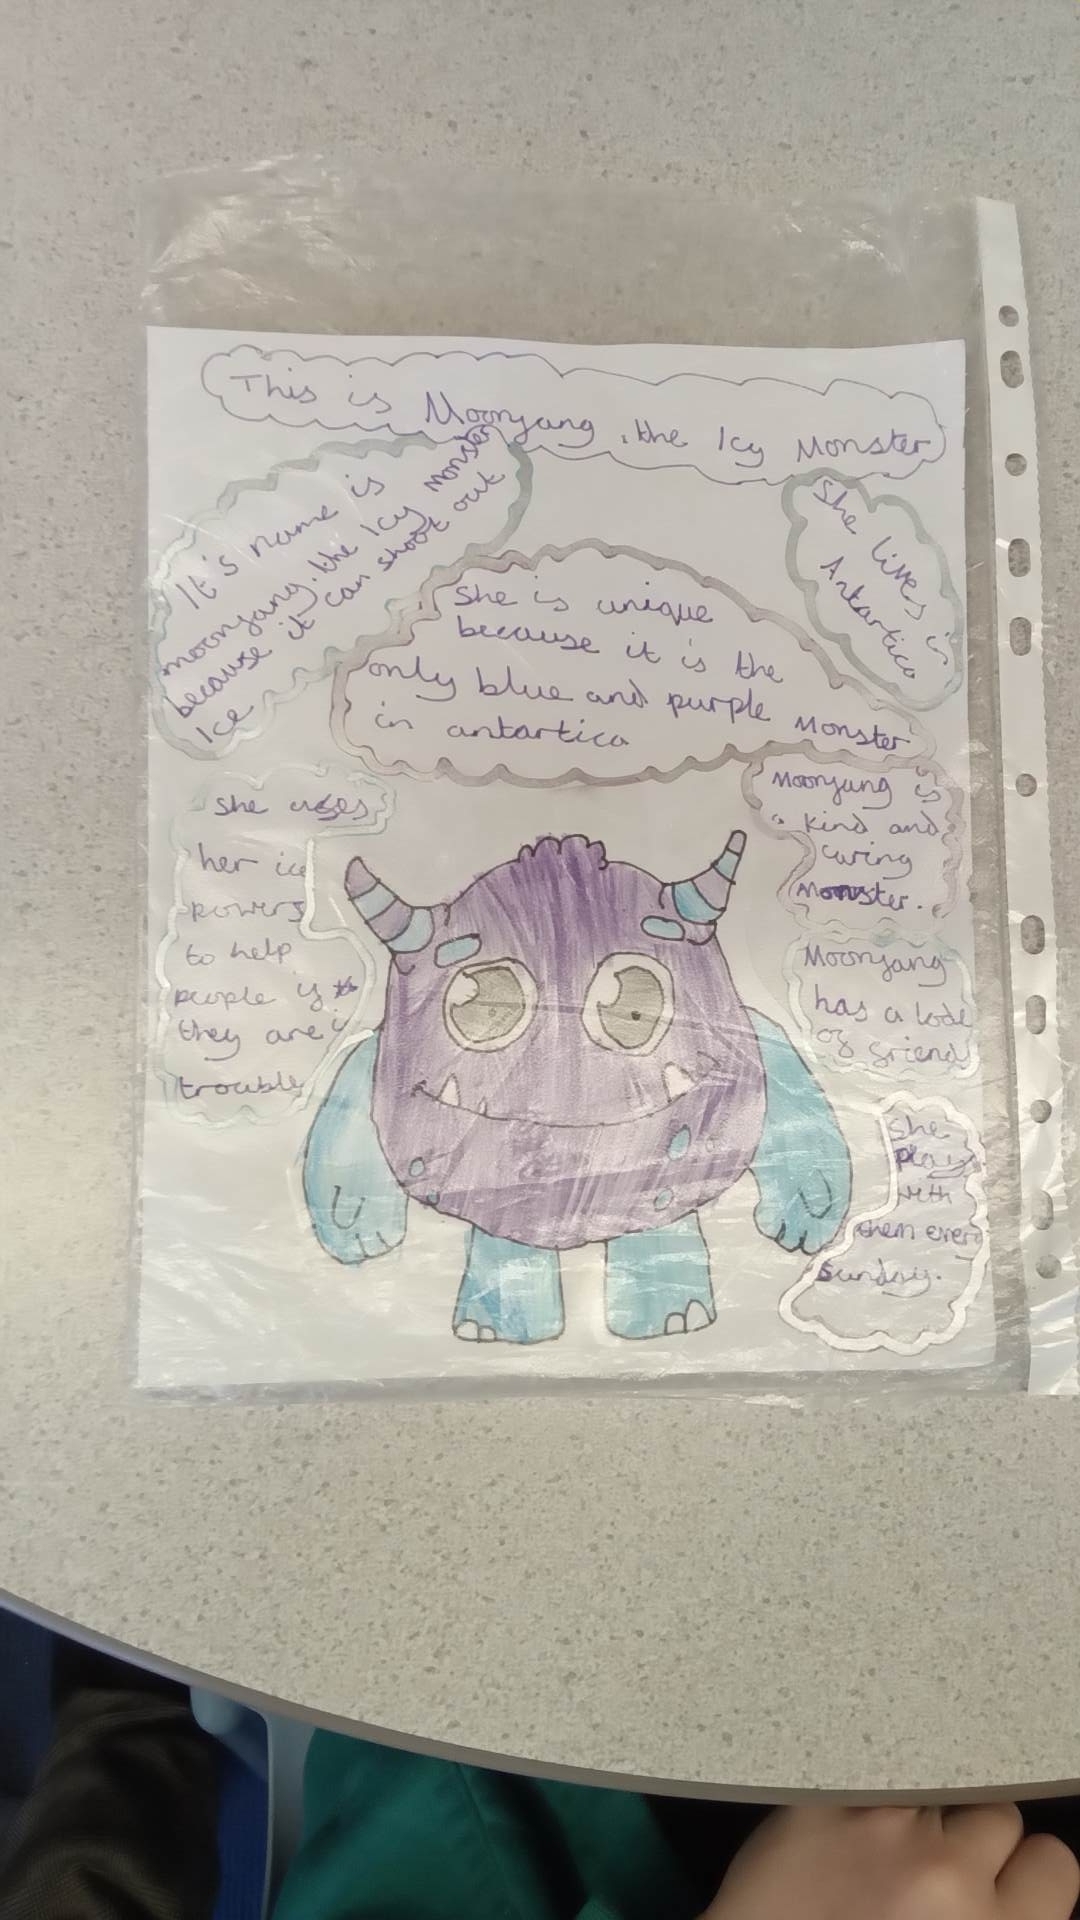 This is Moonyang, the Icy Monster
It's name is
moonyang, the Icy monster
because it can shoot out
Ice
She lives in
Antartica
She is unique
because it is the
only blue and purple Monster
in antartica
she uses
her ice
powers
to help
people if
they are i
trouble
Moonyang is
a kind and
caring
Monster.
Moonyang
has a lode
of friends
she
plays
with
them every
sunday.